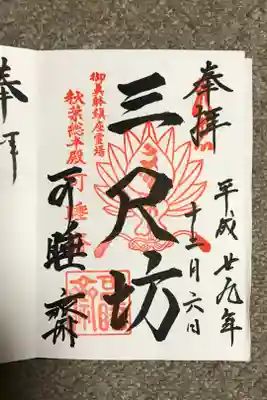 奉拝
平成廿九年
十二月六日
三尺坊
御真躰鎮座霊場
秋葉総本殿可睡斎
可睡齋
奉拝